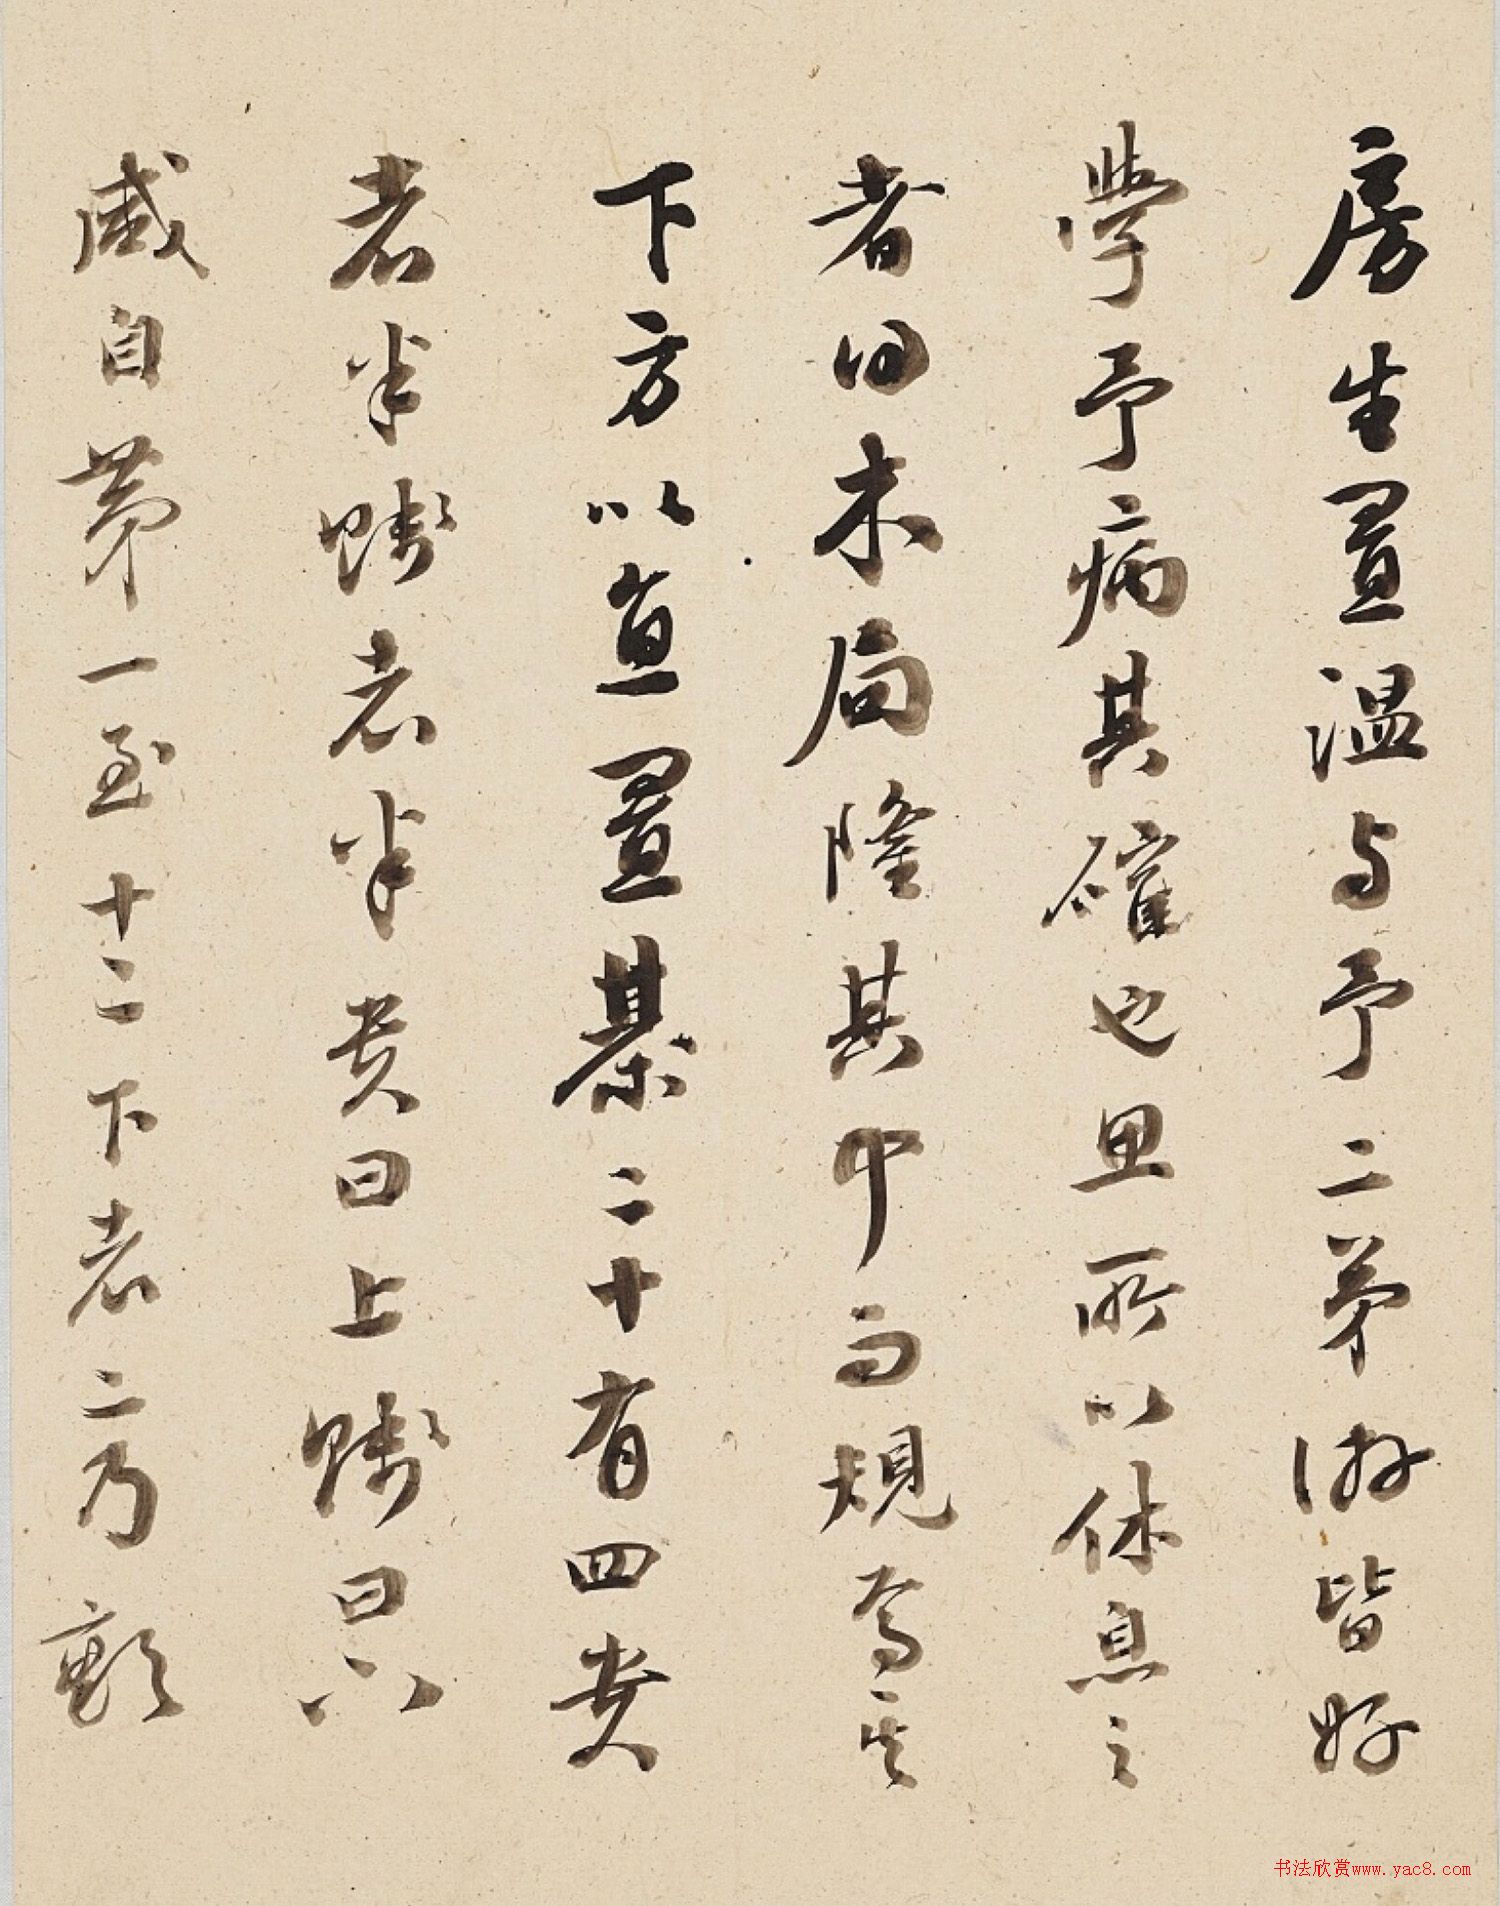 房生置溫与予二弟游皆好
學予病其確也思所以休息之
者得木局隆其中而規焉其
下方以直置棊二十有四貴
者半賤者半貴曰上賤曰下
咸自第一至十二下者二乃敵
书法欣赏www.yac8.com